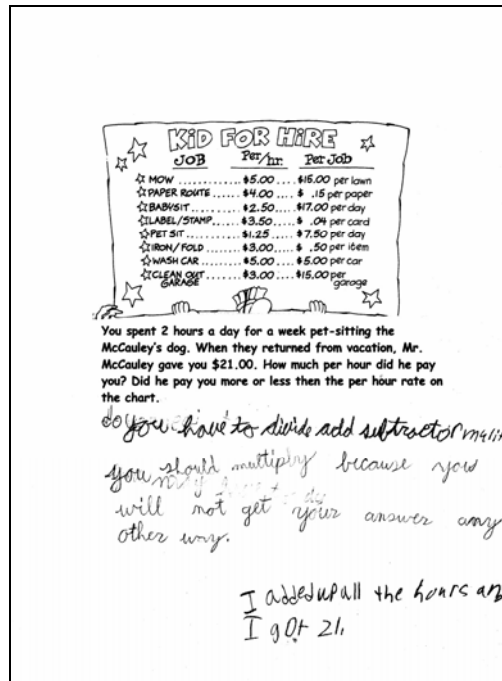 KID FOR HIRE
JOB Per/hr. Per Job
MOW ............ $5.00 .... $15.00 per lawn
PAPER ROUTE ..... $4.00 .... $ .15 per paper
BABYSIT .......... $2.50 .... $17.00 per day
LABEL/STAMP ..... $3.50 .... $ .04 per card
PET SIT ........... $1.25 .... $7.50 per day
IRON/FOLD ....... $3.00 .... $ .50 per item
WASH CAR ....... $5.00 .... $5.00 per car
CLEAN OUT ....... $3.00 .... $15.00 per
GARAGE garage
You spent 2 hours a day for a week pet-sitting the
McCauley's dog. When they returned from vacation, Mr.
McCauley gave you $21.00. How much per hour did he pay
you? Did he pay you more or less then the per hour rate on
the chart.
do you have to divide add subtract or
you should multiply because you
will not get your answer any
other way.
I added up all the hours an
I got 21.